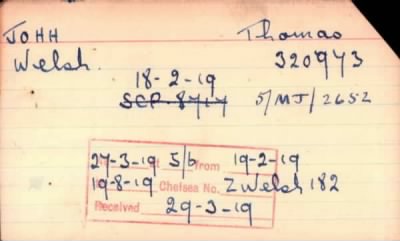 JOHH Thomas
Welsh. 320973
18-2-19
SCP-8717 5/MJ/2652
27-3-19 5/b from 19-2-19
19-8-19 Chelsea No. Z Welsh 182
Received 29-3-19